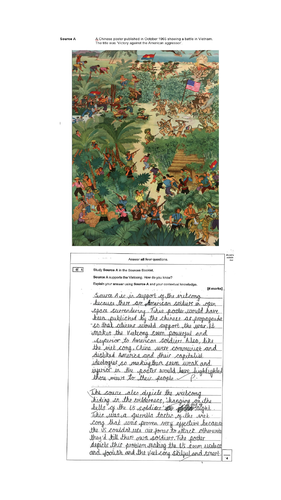 Source A
A Chinese poster published in October 1965 showing a battle in Vietnam.
The title was 'Victory against the American aggression'
Answer all four questions.
0 1
Study Source A in the Sources Booklet.
Source A supports the Vietcong. How do you know?
Explain your answer using Source A and your contextual knowledge.
[4 marks]
Source A is in support of the vietcong
because there are American soldiers in open
space surrendering. This poster would have
been published by the chinese as propaganda
so that citizens would support the war. It
makes the Vietcong seem powerful and
superior to American soldiers. Also, like
the viet cong, China were communist and
disliked America and their capitalist
ideologies so making them seem weak and
inferior in the poster would have highlighted
their power to their people
The source also depicts the vietcong
hiding in the wilderness, hanging on the
belts of the US soldiers
This was a guerilla tactic of the viet
cong that was proven very effective because
the US couldn't use air force to attack otherwise
they'd kill their own soldiers. The poster
depicts this problem making the US seem useless
and foolish and the Viet cong skilful and smart